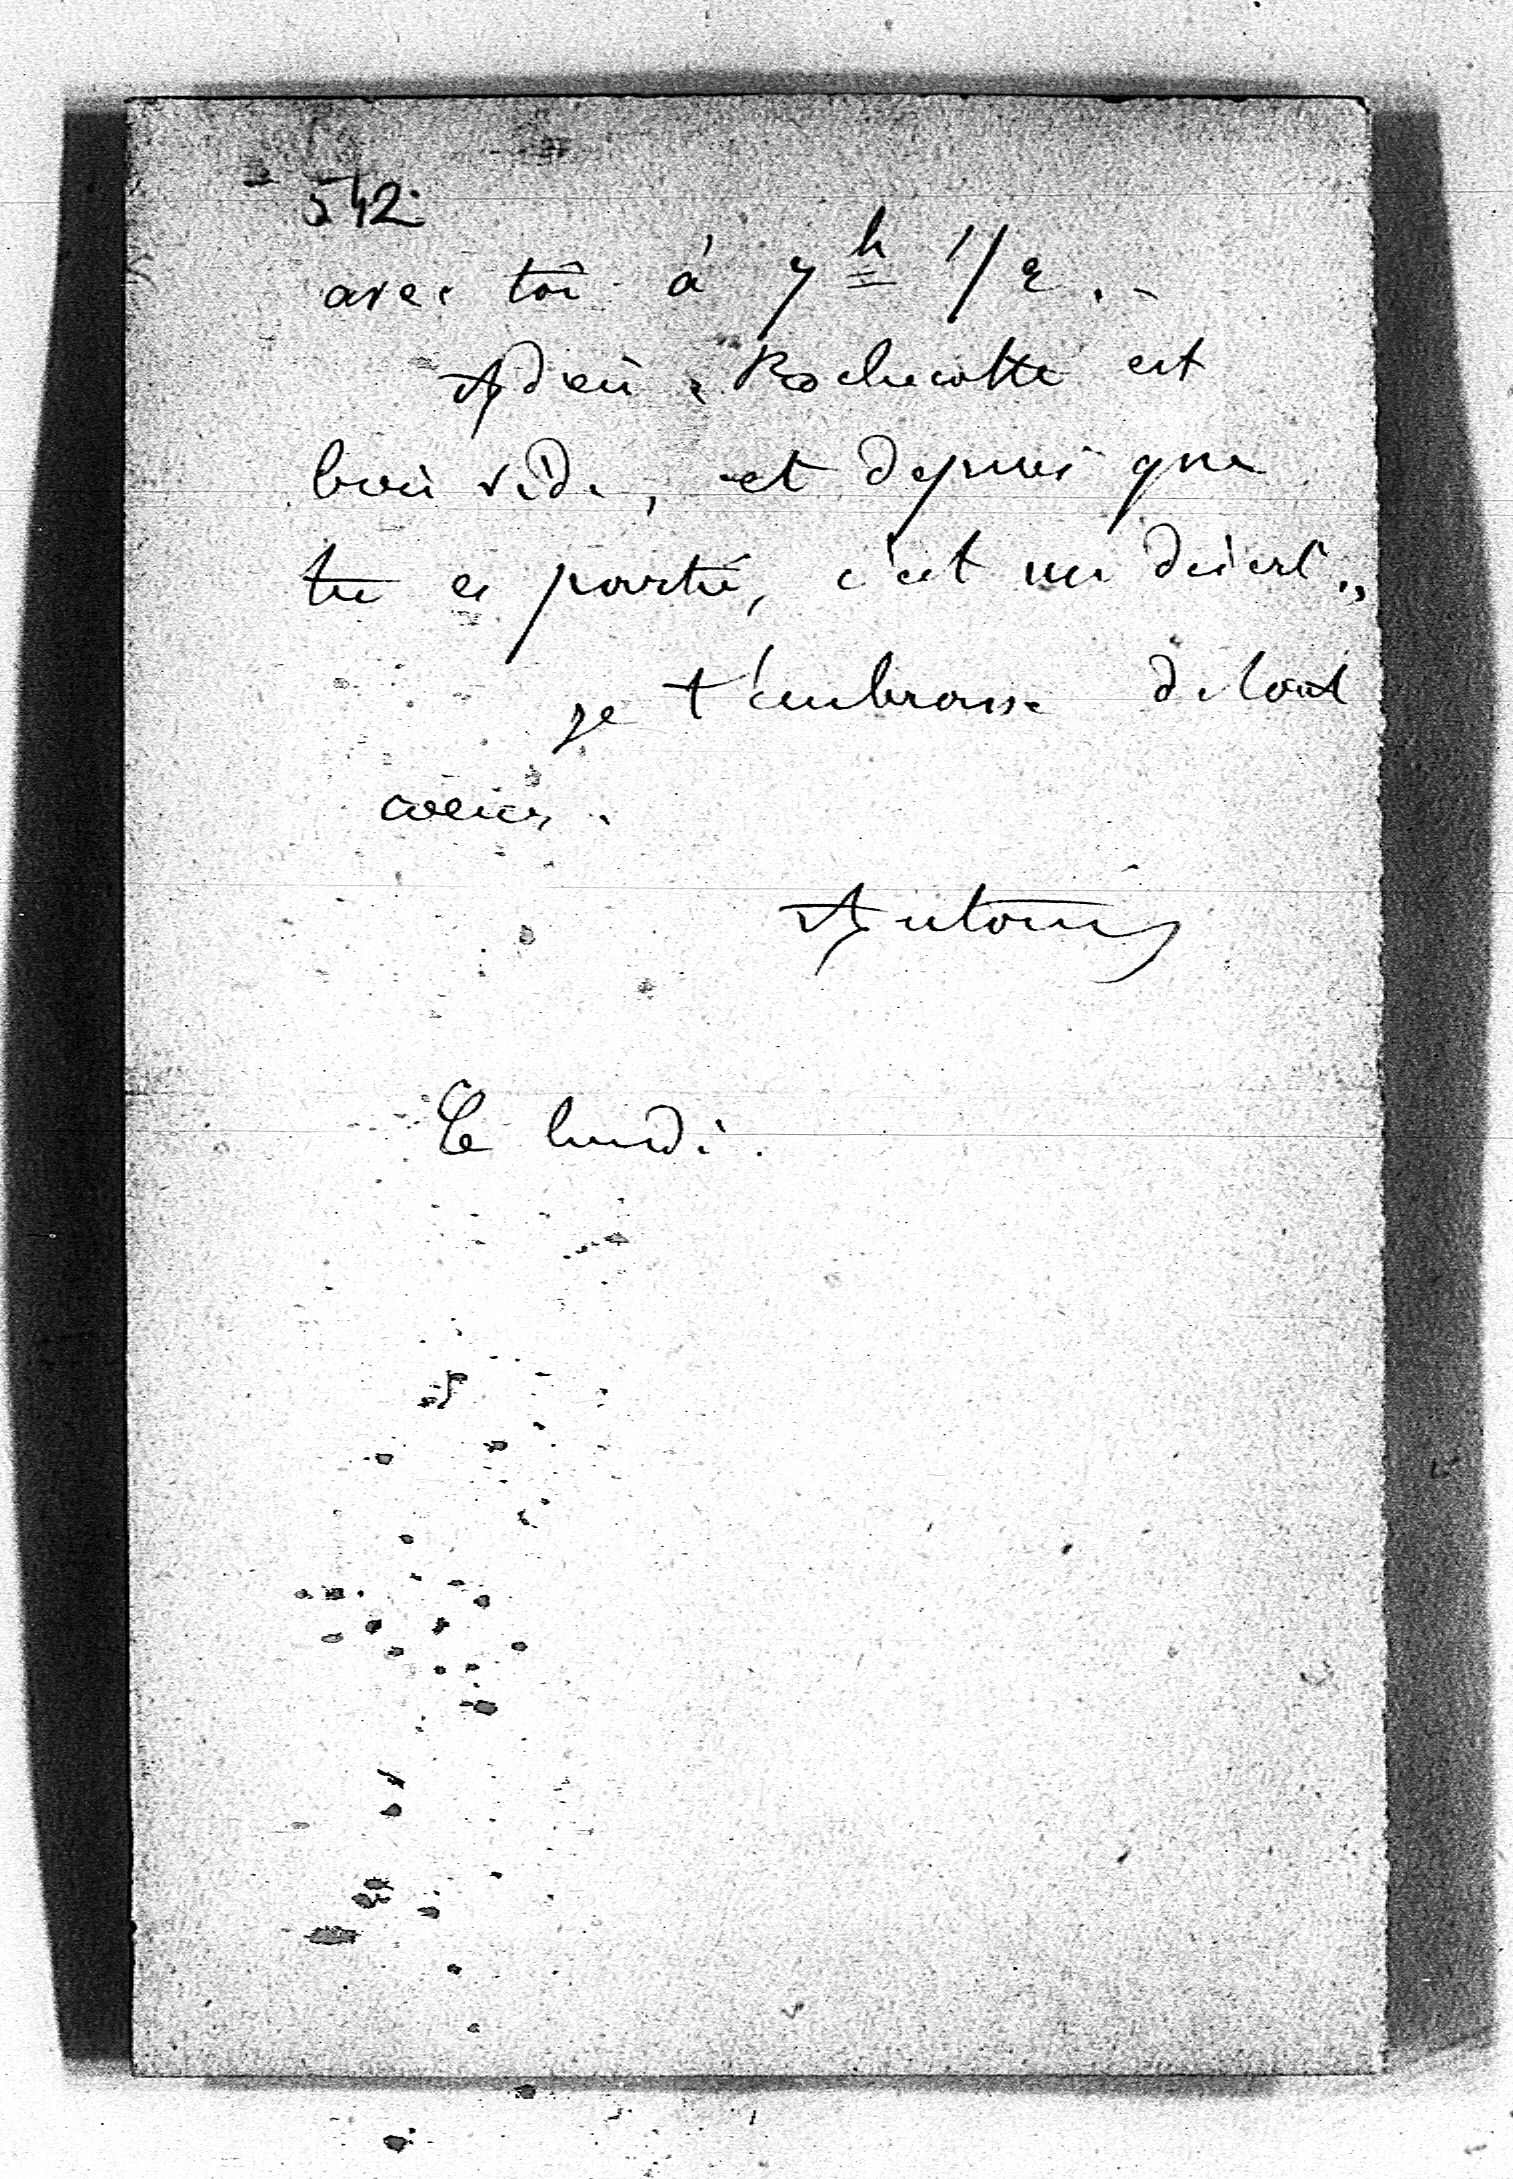 542
avec toi à 7 h 1/2 . -
Adieu, Rochecotte est
bien vide, et depuis que
tu es partie, c'est un désert.
je t'embrasse de tout
coeur.
Antoine
Ce lundi.